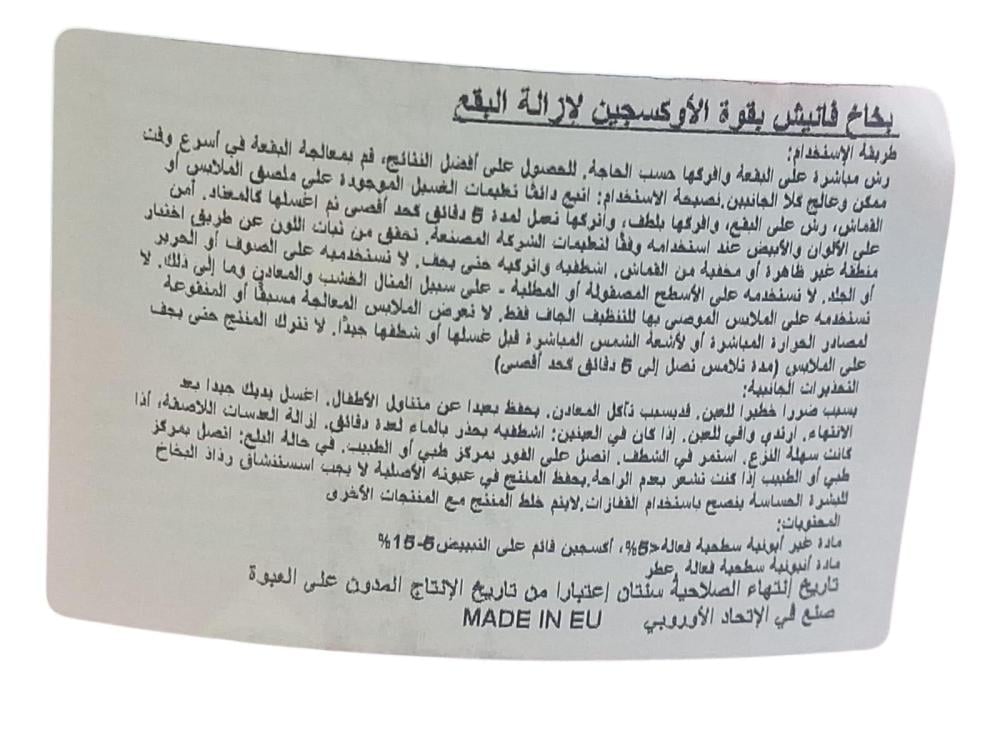 بخاخ فانيش بقوة الأوكسجين لازالة البقع
طريقة الإستخدام:
رش مباشرة على البقعة وافركها حسب الحاجة. للحصول على أفضل النتائج، قم بمعالجة البقعة في أسرع وقت
ممكن وعالج كلا الجانبين.نصيحة الاستخدام: اتبع دائمًا تعليمات الغسيل الموجودة على ملصق الملابس أو
القماش، رش على البقع، وافركها بلطف، واتركها تعمل لمدة 5 دقائق كحد أقصى ثم اغسلها كالمعتاد. آمن
على الألوان والأبيض عند استخدامه وفقًا لتعليمات الشركة المصنعة. تحقق من ثبات اللون عن طريق اختبار
منطقة غير ظاهرة أو مخفية من القماش. اشطفيه واتركيه حتى يجف. لا تستخدميه على الصوف أو الحرير
أو الجلد. لا تستخدمه على الأسطح المصقولة أو المطلية - على سبيل المثال الخشب والمعادن وما إلى ذلك. لا
تستخدمه على الملابس الموصى بها للتنظيف الجاف فقط. لا تعرض الملابس المعالجة مسبقًا أو المنقوعة
لمصادر الحرارة المباشرة أو لأشعة الشمس المباشرة قبل غسلها أو شطفها جيدًا. لا تترك المنتج حتى يجف
على الملابس (مدة تلامس تصل إلى 5 دقائق كحد أقصى)
التحذيرات الجانبية:
يسبب ضررا خطيرا للعين. قديسبب تآكل المعادن. يحفظ بعيدا عن متناول الأطفال. اغسل يديك جيدا بعد
الانتهاء. ارتدي واقي للعين. إذا كان في العينين: اشطفيه بحذر بالماء لعدة دقائق. إزالة العدسات اللاصقة، أذا
كانت سهلة النزع. استمر في الشطف. اتصل على الفور بمركز طبي أو الطبيب. في حالة البلع: اتصل بمركز
طبي أو الطبيب إذا كنت تشعر بعدم الراحة.يحفظ المنتج في عبوته الأصلية لا يجب استنشاق رذاذ البخاخ
للبشرة الحساسة ينصح باستخدام القفازات.لايتم خلط المنتج مع المنتجات الأخرى
المحتويات:
مادة غير أيونية سطحية فعالة<5%، أكسجين قائم على التبييض5-15%
مادة أنيونية سطحية فعالة ,عطر
تاريخ إنتهاء الصلاحية سنتان إعتبارا من تاريخ الإنتاج المدون على العبوة
صنع في الإتحاد الأوروبي MADE IN EU